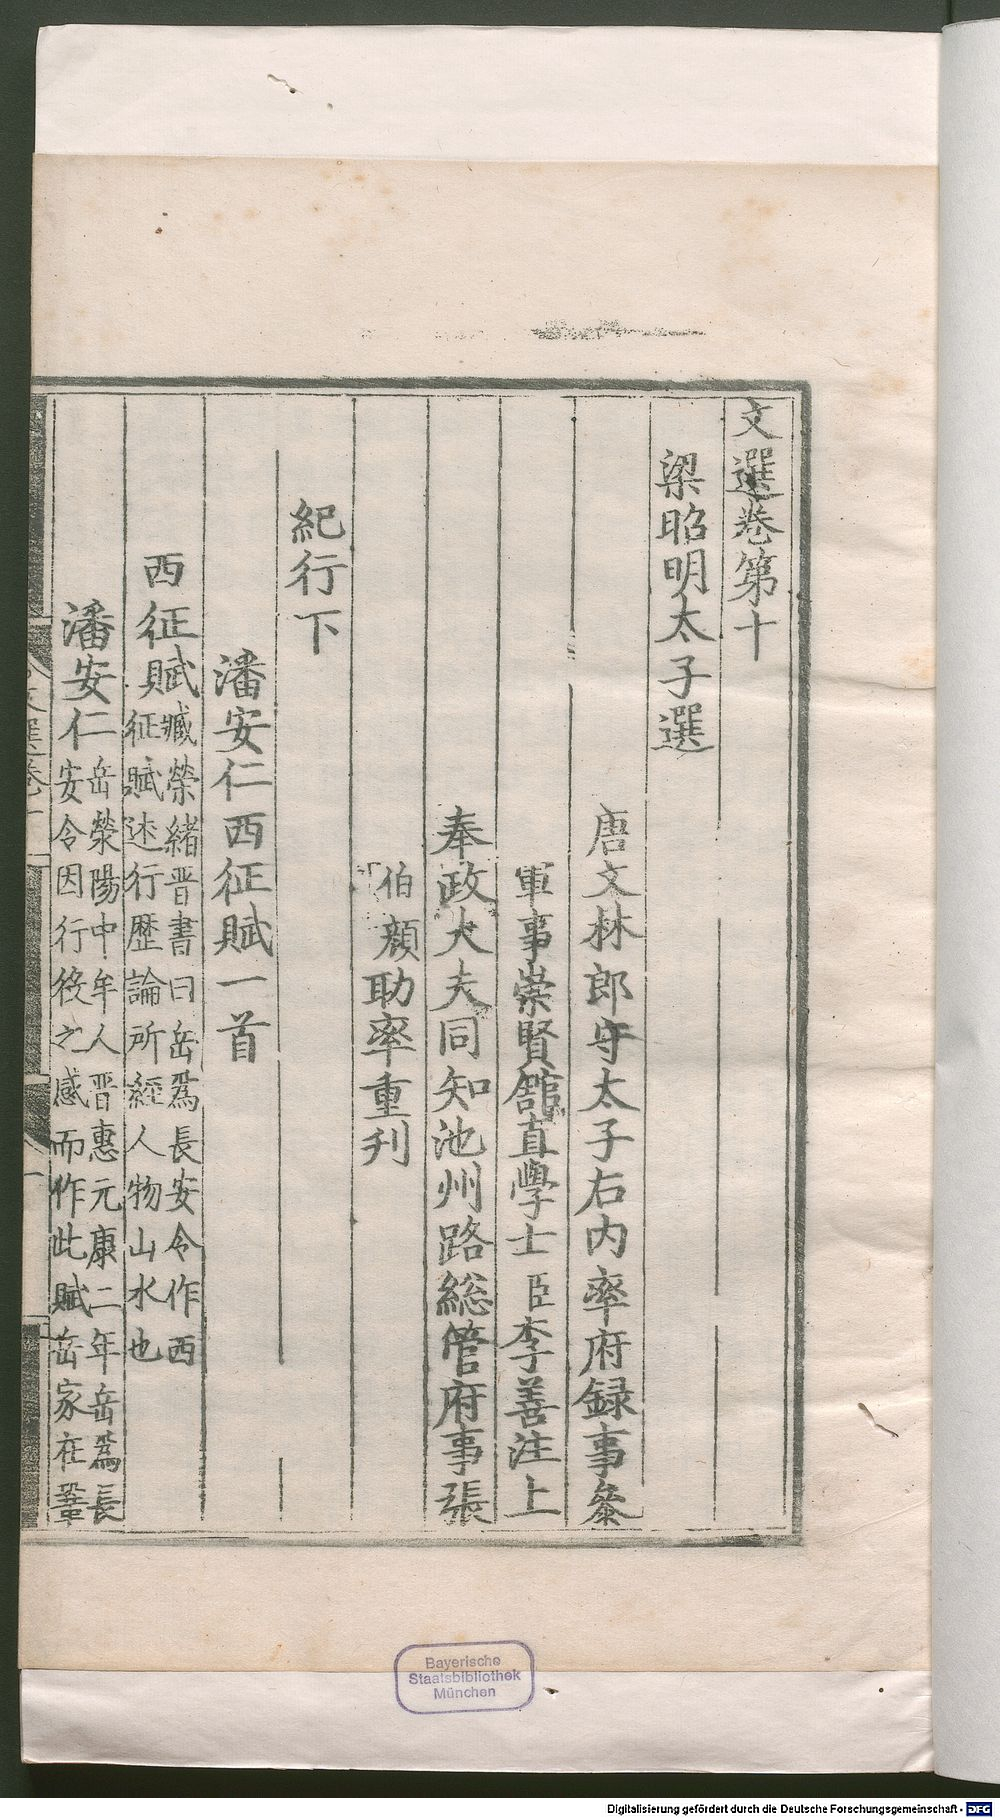 文選卷第十
梁昭明太子選
唐文林郎守太子右內率府録事叅
軍事崇賢館直學士臣李善注上
奉政大夫同知池州路総管府事張
伯顔助率重刊
紀行下
潘安仁西征賦一首
西征賦臧榮緒晋書曰岳爲長安令作西
征賦述行歷論所經人物山水也
潘安仁岳滎陽中牟人晋惠元康二年岳爲長
安令因行役之感而作此賦岳家在鞏
文選卷十
Bayerische
Staatsbibliothek
München
Digitalisierung gefördert durch die Deutsche Forschungsgemeinschaft - DFG